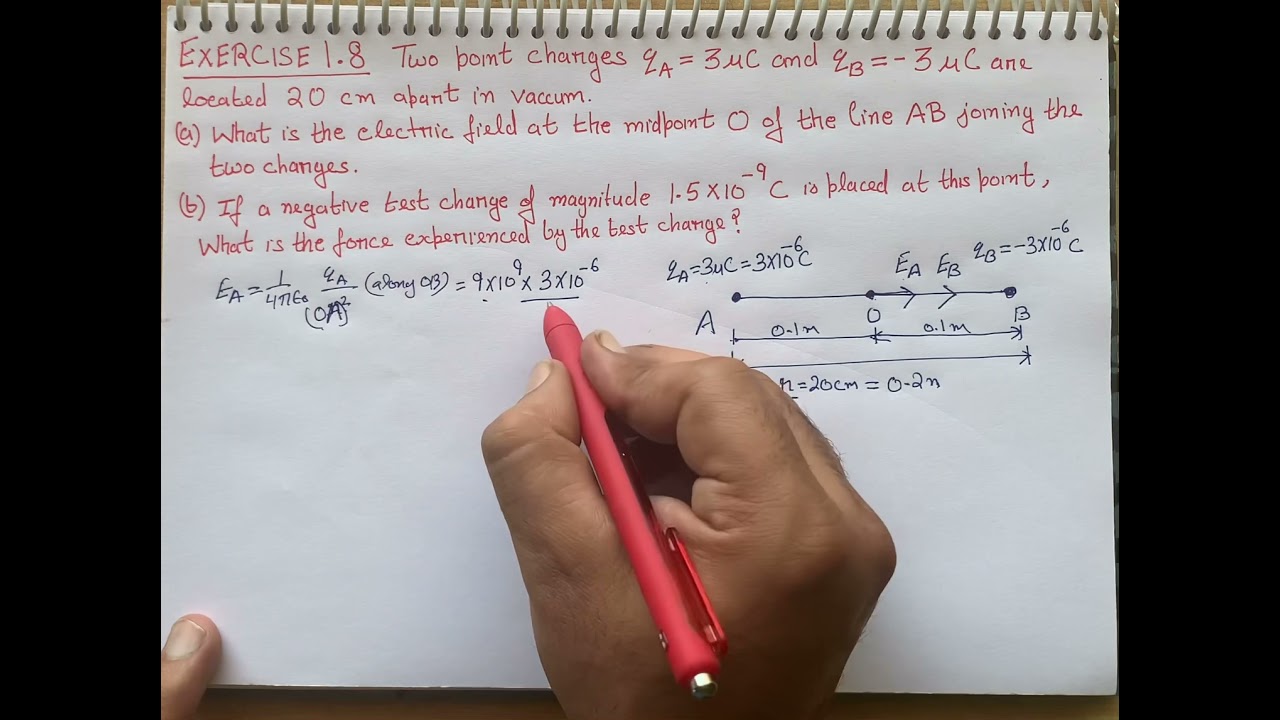 EXERCISE 1.8 Two point charges qA = 3 μC and qB = - 3 μC are
located 20 cm apart in vaccum.
(a) What is the electric field at the midpoint O of the line AB joining the
two charges.
(b) If a negative test charge of magnitude 1.5 × 10⁻⁹ C is placed at this point,
What is the force experienced by the test charge?
EA = 1/4πε₀ qA/(OA)² (along OB) = 9×10⁹ × 3×10⁻⁶
qA = 3μC = 3×10⁻⁶C
EA EB
qB = -3×10⁻⁶C
A O B
0.1m 0.1m
r = 20cm = 0.2m